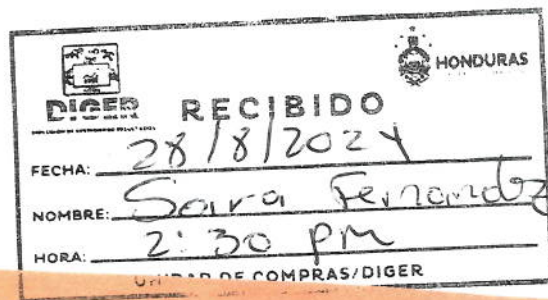 HONDURAS
DIGER
RECIBIDO
FECHA: 28/8/2024
NOMBRE: Sara Fernandez
HORA: 2:30 pm
UNIDAD DE COMPRAS/DIGER